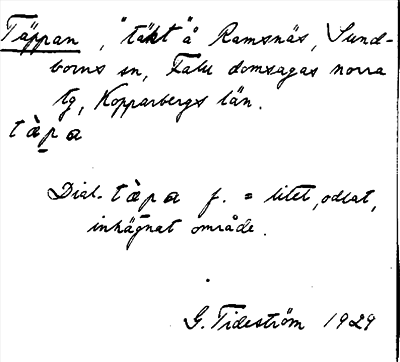 Täppan, "täkt" å Ramsnäs, Sund-
borns sn, Falu domsagas norra
tg, Kopparbergs län.
tàpa
Dial. tàpa f. = litet, odlat,
inhägnat område.
G. Tideström 1929